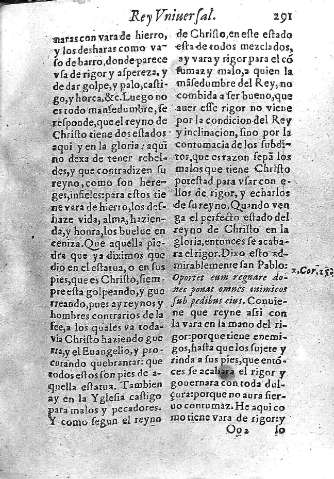 Rey Vniuersal. 291
naras con vara de hierro,
y los desharas como va-
so de barro, donde parece
vsa de rigor y aspereza, y
de dar golpe, y palo, casti-
go, y horca, &c. Luego no
es todo mansedumbre, se
responde, que el reyno de
Christo tiene dos estados
aqui y en la gloria: aqui
no dexa de tener rebel-
des, y que contradizen su
reyno, como son here-
ges, infieles: para estos tie
ne vara de hierro, los des-
haze vida, alma, hazien-
da, y honra, los buelue en
ceniza. Que aquella pie
dra que ya diximos que
dio en el estatua, o en sus
pies, que es Christo, siem-
pre esta golpeando, y gue
rreando, pues ay reynos y
hombres contrarios de la
fee, a los quales va toda-
via Christo haziendo gue
rra, y el Euangelio, y pro-
curando quebrantar: que
todos estos son pies de a-
quella estatua. Tambien
ay en la Yglesia castigo
para malos y pecadores.
Y como segun el reyno
de Christo, en este estado
esta de todos mezclados,
ay vara y rigor para el cõ
tumaz y malo, a quien la
mãsedumbre del Rey, no
combida a ser bueno, que
auer esse rigor no viene
por la condicion del Rey
y inclinacion, sino por la
contumacia de los subdi-
tos, que es razon sepã los
malos que tiene Christo
potestad para vsar con e-
llos de rigor, y echarlos
de su reyno. Quando ven
ga el perfecto estado del
reyno de Christo en la
gloria, entonces se acaba-
ra el rigor. Dixo esto ad-
mirablemente san Pablo:
Oportet eum regnare do-
nec ponat omnes inimicos
sub pedibus eius. Conuie-
ne que reyne assi con
la vara en la mano del ri-
gor: porque tiene enemi-
gos, hasta que los sujete y
rinda a sus pies, que entõ-
ces se acabara el rigor y
gouernara con toda dul-
çura: porque no aura sier-
uo contumaz. He aqui co
mo tiene vara de rigor: y
Oo2 lo